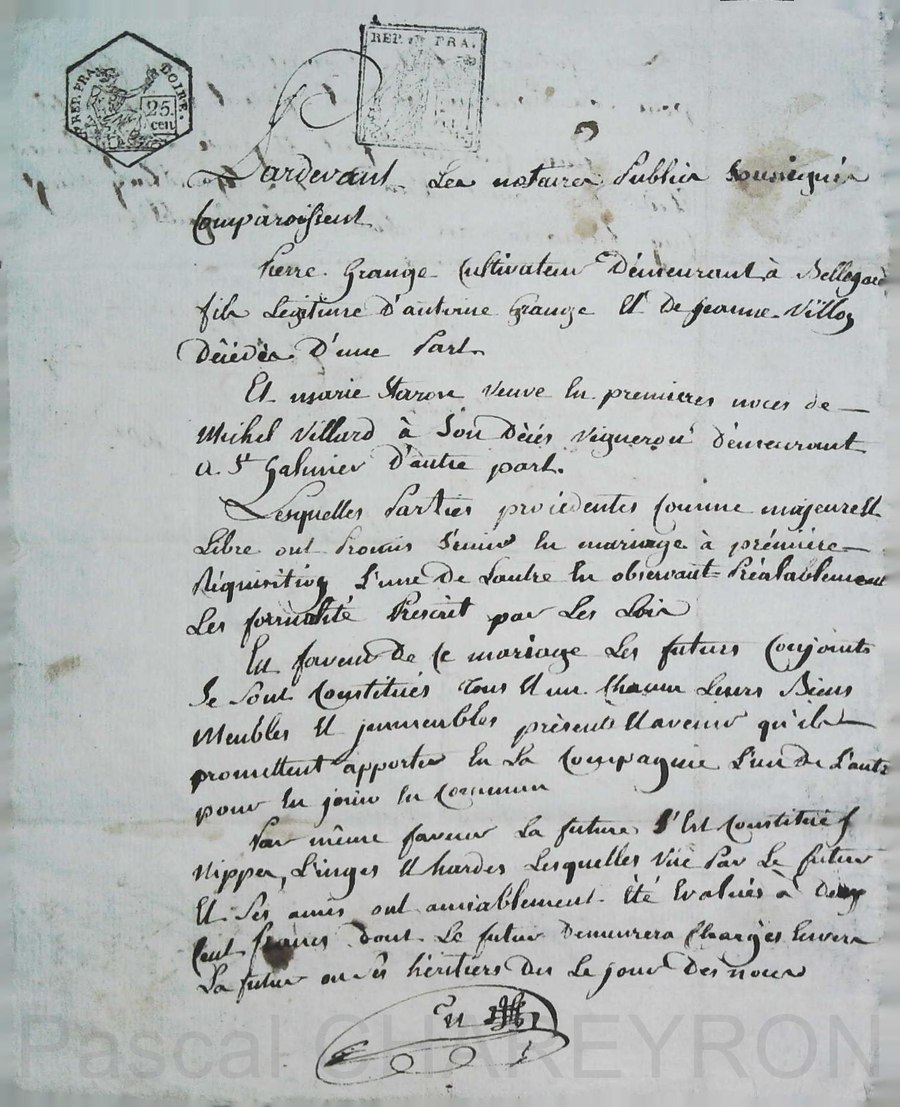 REP. FRA.
DOIRE.
25.
cen
REP. FRA.
Pardevant Les notaires Publics Soussignés
Comparoissent
Pierre Grange Cultivateur Démeurant à Bellegarde
fils Légitime D'antoine Grange Et de jeanne Villoy
Décédés D'une Part
Et marie Staron veuve En premieres noces de
Michel Villard à Son Décés vigneron démeurant
a St Galmier D'autre part.
Lesquelles Parties procédentes Comme majeure Et
Libre ont Promis S'unir En mariage à prémiére
Réquisition L'une De Lautre En observant Préalablement
Les formalité Prescrit par Les Lois
En faveur De Ce mariage Les futurs Conjoints
Se Sont Constitués tous Et un Chacun Leurs Biens
Meubles Et jmmeubles présents Et avenir qu'ils
promettent apporter En La Compagnie L'un De L'autre
pour En jouir En Commun
Par même faveur La future S'Est Constitué
Nippes, Linges Et hardes Lesquelles Vüe Par Le futur
Et Ses amis ont amiablement Été Evalués à Deux
Cent francs dont Le futur Demeurera Chargés Envers
La futur ou Ses héritiers Dès Le jour Des noces
Pascal CHAREYRON